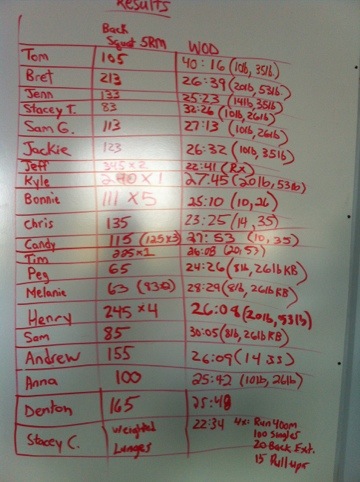 Results
Back
Squat 5RM WOD
Tom 105 40:16 (10lb, 35lb.)
Bret 213 26:39 (20lb, 53lb)
Jenn 133 25:23 (14lb, 35lb)
Stacey T. 83 32:26 (10lb, 26lb)
Sam G. 113 27:13 (10lb, 26lb)
Jackie 123 26:32 (10lb, 35lb)
Jeff 345 x 2 22:41 (Rx)
Kyle 240 x 1 27:45 (20lb, 53lb)
Bonnie 111 x 5 25:10 (10, 26)
Chris 135 23:25 (14, 35)
Candy 115 (125x3) 27:53 (10, 35)
Tim 225x1 26:08 (20, 53)
Peg 65 24:26 (8lb, 26lb KB)
Melanie 63 28:29 (8lb, 26lb KB)
Henry 245 x4 26:08 (20lb, 53lb)
Sam 85 30:05 (8lb, 26lb KB)
Andrew 155 26:09 (14 35)
Anna 100 25:42 (10lb, 26lb)
Denton 165 25:48
Stacey C. Weighted Lunges 22:34 4x: Run 400m
100 Singles
20 Back Ext.
15 Pull ups